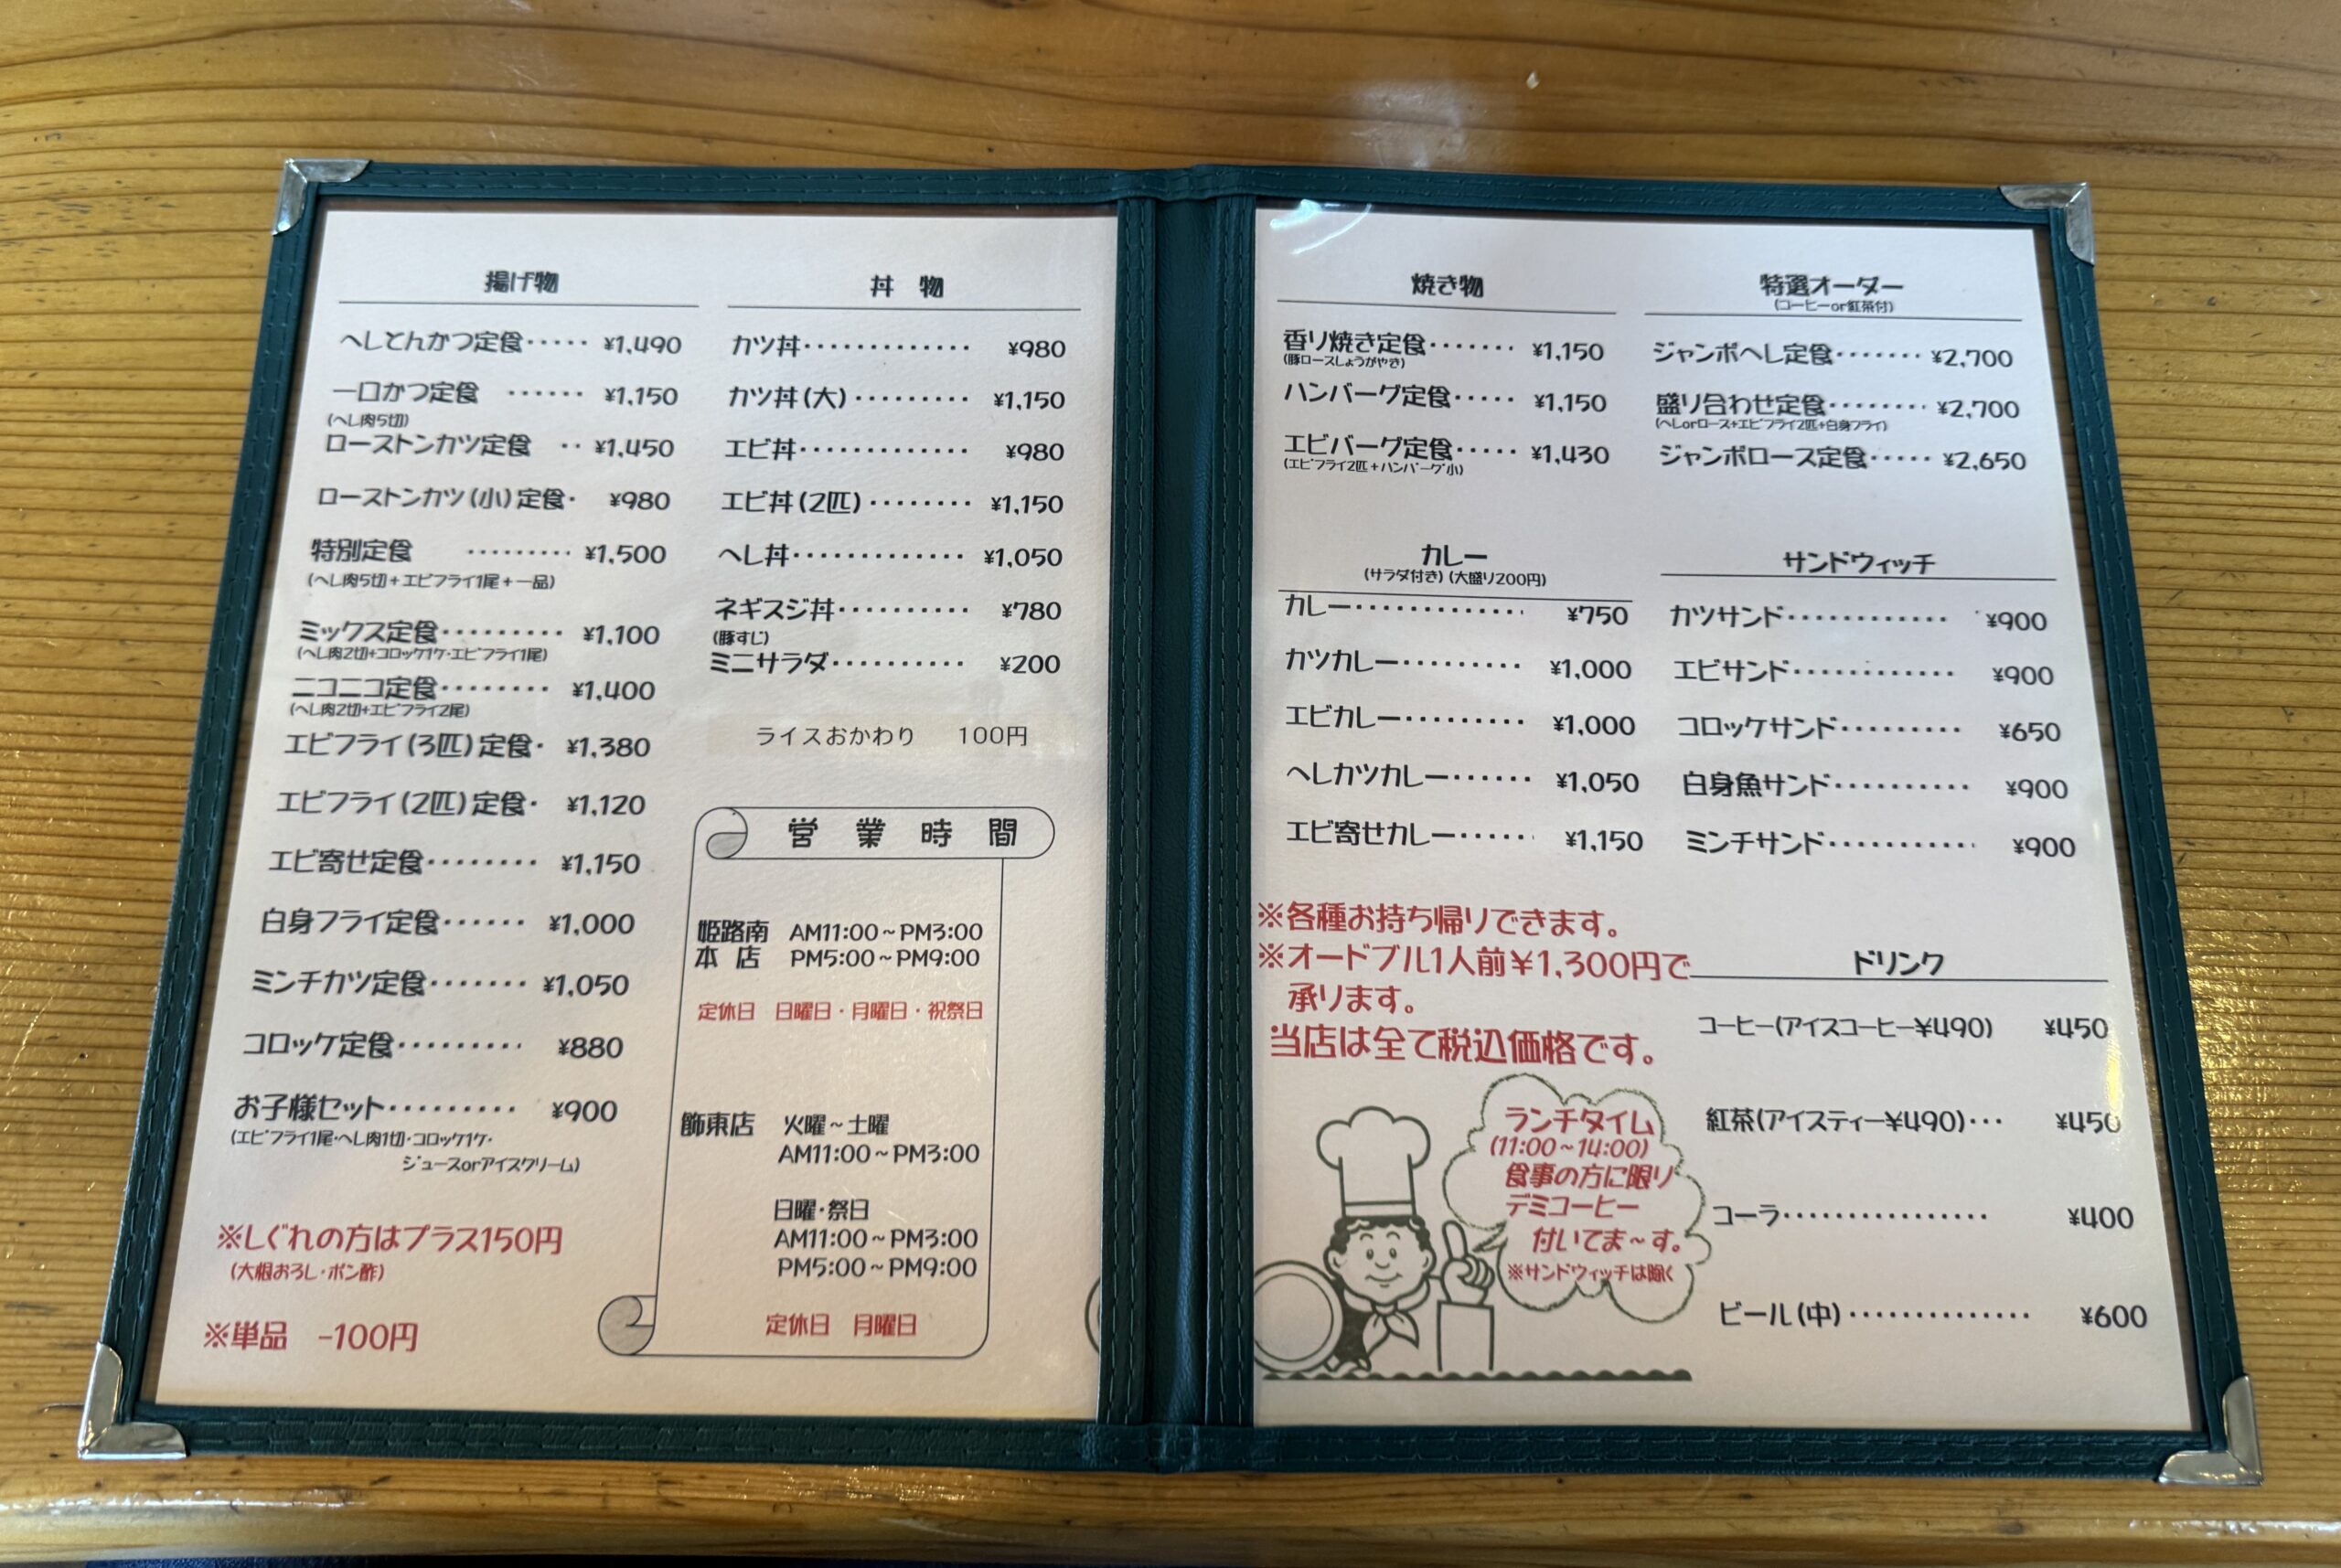 揚げ物
へしとんかつ定食‥‥‥ ¥1,490
一口かつ定食 ‥‥‥ ¥1,150
(へし肉5切)
ローストンカツ定食 ‥ ¥1,450
ローストンカツ(小)定食・ ¥980
特別定食 ‥‥‥‥‥ ¥1,500
(へし肉5切+エビフライ1尾+一品)
ミックス定食‥‥‥‥‥ ¥1,100
(へし肉2切+コロッケ1ケ・エビフライ1尾)
ニコニコ定食‥‥‥‥ ¥1,400
(へし肉2切+エビフライ2尾)
エビフライ(3匹)定食・ ¥1,380
エビフライ(2匹)定食・ ¥1,120
エビ寄せ定食‥‥‥‥ ¥1,150
白身フライ定食‥‥‥ ¥1,000
ミンチカツ定食‥‥‥‥ ¥1,050
コロッケ定食‥‥‥‥‥ ¥880
お子様セット‥‥‥‥‥ ¥900
(エビフライ1尾・へし肉1切・コロッケ1ケ・
ジュースorアイスクリーム)
※しぐれの方はプラス150円
(大根おろし・ポン酢)
※単品 -100円
丼 物
カツ丼‥‥‥‥‥‥‥ ¥980
カツ丼(大)‥‥‥‥‥ ¥1,150
エビ丼‥‥‥‥‥‥‥ ¥980
エビ丼(2匹)‥‥‥‥ ¥1,150
へし丼‥‥‥‥‥‥‥ ¥1,050
ネギスジ丼‥‥‥‥‥ ¥780
(豚すじ)
ミニサラダ‥‥‥‥‥ ¥200
ライスおかわり 100円
営業時間
姫路南 AM11:00~PM3:00
本 店 PM5:00~PM9:00
定休日 日曜日・月曜日・祝祭日
飾東店 火曜~土曜
AM11:00~PM3:00
日曜・祭日
AM11:00~PM3:00
PM5:00~PM9:00
定休日 月曜日
焼き物
香り焼き定食‥‥‥‥ ¥1,150
(豚ロースしょうがやき)
ハンバーグ定食‥‥‥ ¥1,150
エビバーグ定食‥‥‥ ¥1,430
(エビフライ2匹+ハンバーグ小)
特選オーダー
(コーヒーor紅茶付)
ジャンボへし定食‥‥‥‥ ¥2,700
盛り合わせ定食‥‥‥‥ ¥2,700
(へしorロース+エビフライ2匹+白身フライ)
ジャンボロース定食‥‥‥ ¥2,650
カレー
(サラダ付き)(大盛り200円)
カレー‥‥‥‥‥‥‥ ¥750
カツカレー‥‥‥‥‥ ¥1,000
エビカレー‥‥‥‥‥ ¥1,000
へしカツカレー‥‥‥ ¥1,050
エビ寄せカレー‥‥‥ ¥1,150
サンドウィッチ
カツサンド‥‥‥‥‥‥ ¥900
エビサンド‥‥‥‥‥‥ ¥900
コロッケサンド‥‥‥‥‥ ¥650
白身魚サンド‥‥‥‥‥ ¥900
ミンチサンド‥‥‥‥‥‥ ¥900
※各種お持ち帰りできます。
※オードブル1人前¥1,300円で
承ります。
当店は全て税込価格です。
ランチタイム
(11:00~14:00)
食事の方に限り
デミコーヒー
付いてま~す。
※サンドウィッチは除く
ドリンク
コーヒー(アイスコーヒー¥490) ¥450
紅茶(アイスティー¥490)‥‥ ¥450
コーラ‥‥‥‥‥‥‥‥ ¥400
ビール(中)‥‥‥‥‥‥‥ ¥600